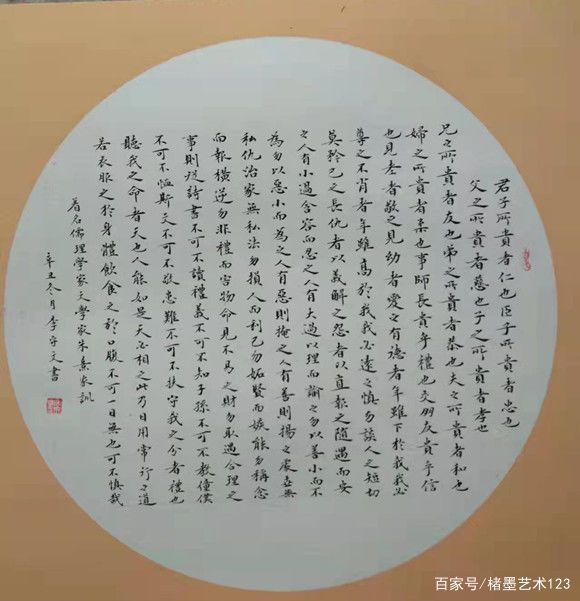 君子所貴者仁也臣子所貴者忠也
父之所貴者慈也子之所貴者孝也
兄之所貴者友也弟之所貴者恭也夫之所貴者和也
婦之所貴者柔也事師長貴乎禮也交朋友貴乎信
也見老者敬之見幼者愛之有德者年雖下於我我必
尊之不肖者年雖高於我我必遠之慎勿談人之短切
莫矜己之長仇者以義解之怨者以直報之隨遇而安
之人有小過含容而忍之人有大過以理而諭之勿以善小而不
為勿以惡小而為之人有惡則掩之人有善則揚之處世無
私仇治家無私法勿損人而利己勿妒賢而嫉能勿稱忿
而報橫逆勿非禮而害物命見不义之財勿取遇合理之
事則從詩書不可不讀禮義不可不知子孫不可不教僮僕
不可不恤斯文不可不敬患難不可不扶守我之分者禮也
聽我之命者天也人能如是天必相之此乃日用常行之道
若衣服之於身體飲食之於口腹不可一日無也可不慎哉
著名儒理學家文學家朱熹家訓
辛丑冬月李守文書
百家号/楮墨艺术123